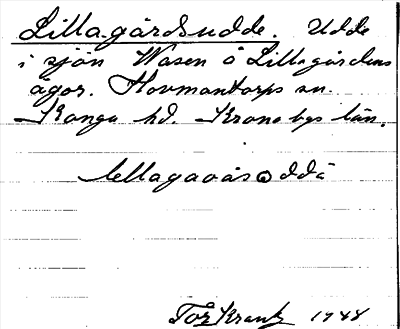 Lillagårdsudde. Udde
i sjön Wasen å Lillagårdens
ägor. Hovmantorps sn.
Konga hd. Kronobgs län.
Tor Krantz 1948